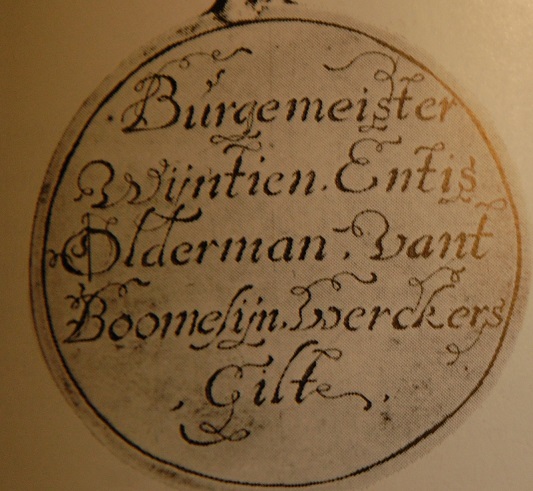 Burgemeister
Wijntien. Entis
Olderman. Vant
Boomesijn. Werckers
Gilt.